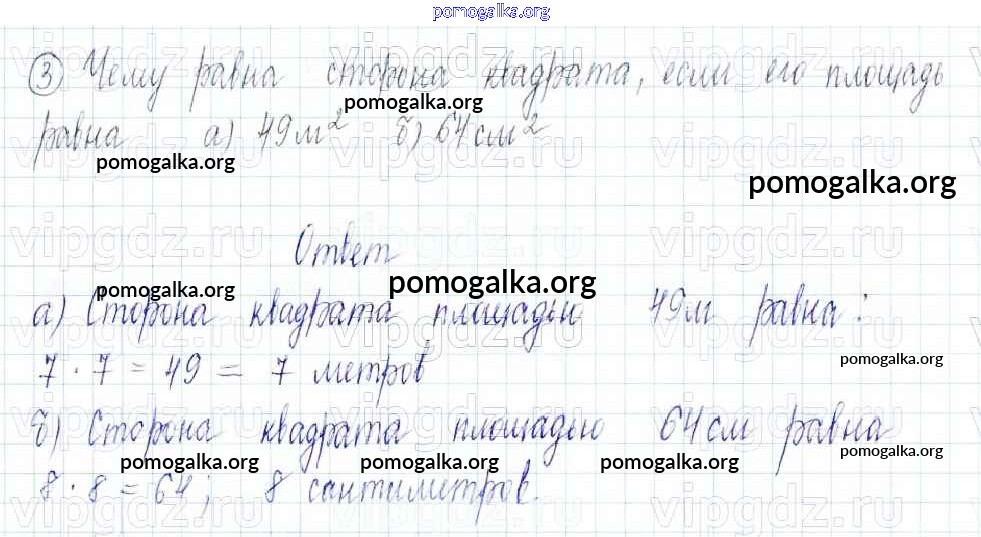 pomogalka.org
③ Чему равна сторона квадрата, если его площадь
pomogalka.org
равна а) 49м² б) 64см²
pomogalka.org
pomogalka.org
vipgdz.ru
Ответ
pomogalka.org
pomogalka.org
а) Сторона квадрата площадью 49м равна:
7 · 7 = 49 = 7 метров
pomogalka.org
б) Сторона квадрата площадью 64см равна
pomogalka.org pomogalka.org pomogalka.org pomogalka.org
8 · 8 = 64; 8 сантиметров.